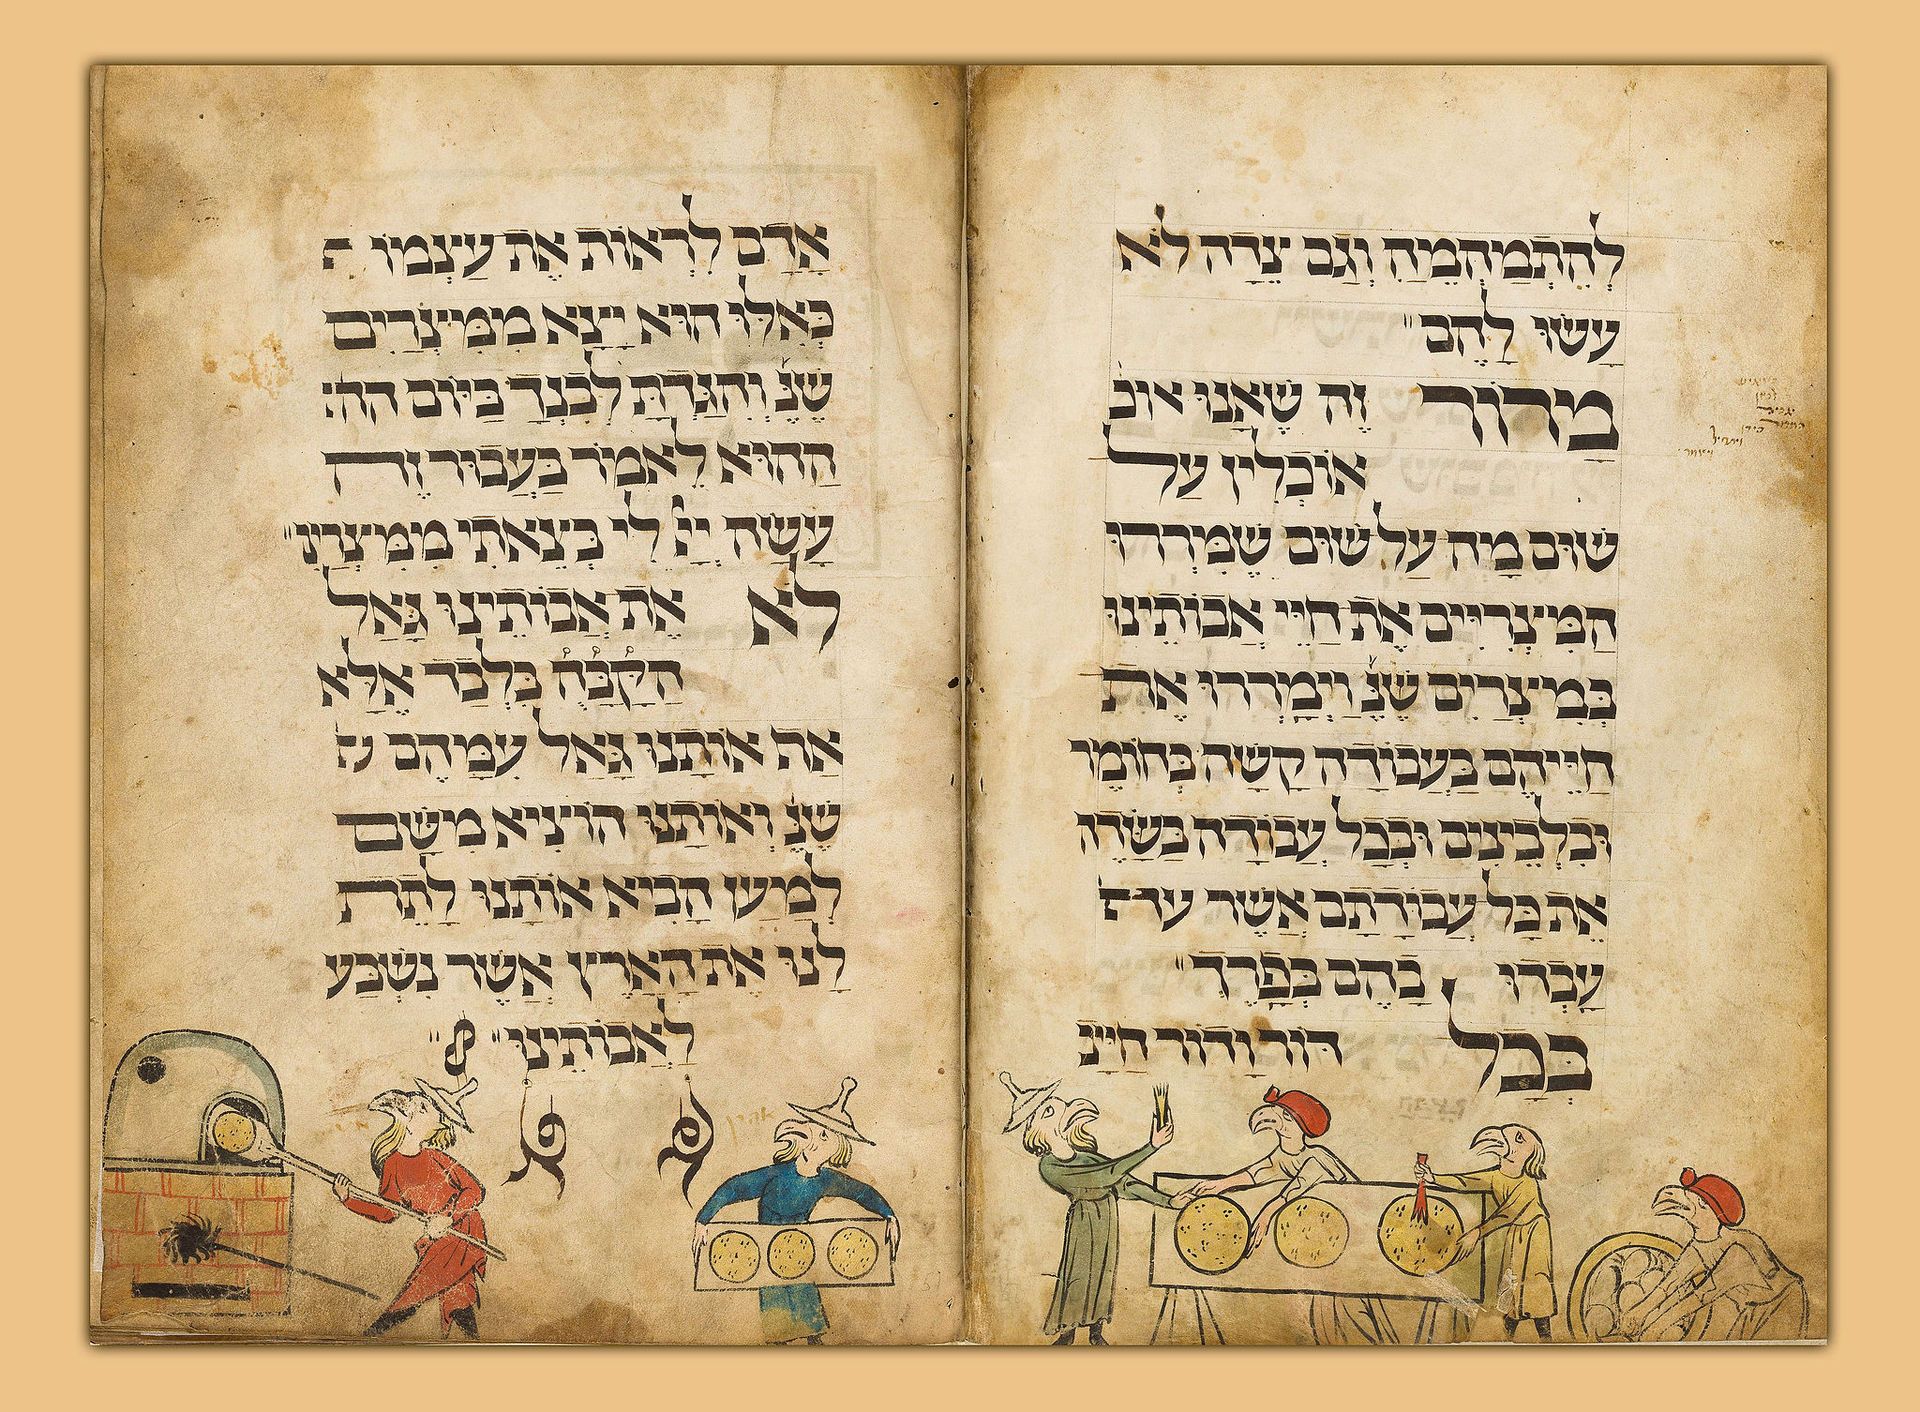 לְהִתְמַהְמֵהַּ וְגַם צֵדָה לֹא
עָשׂוּ לָהֶם״
מָרוֹר זֶה שֶׁאָנוּ אוכ
אוֹכְלִין עַל
שׁוּם מָה עַל שׁוּם שֶׁמֵּרְרוּ
הַמִּצְרִיִּים אֶת חַיֵּי אֲבוֹתֵינוּ
בְּמִצְרַיִם שֶׁנֶּ׳ וַיְמָרְרוּ אֶת
חַיֵּיהֶם בַּעֲבוֹדָה קָשָׁה בְּחוֹמֶר
וּבִלְבֵינִים וּבְכָל עֲבוֹדָה בַּשָּׂדֶה
אֵת כָּל עֲבוֹדָתָם אֲשֶׁר
עָבְדוּ בָהֶם בְּפָרֶךְ״
בְּכָל דוֹר וָדוֹר חַיָּב
אָדָם לִרְאוֹת אֶת עַצְמוֹ
כְּאִלּוּ הוּא יָצָא מִמִּצְרַיִם
שֶׁנֶּ׳ וְהִגַּדְתָּ לְבִנְךָ בַּיּוֹם הה
הַהוּא לֵאמֹר בַּעֲבוּר זֶה
עָשָׂה יְיָ׳ לִי בְּצֵאתִי מִמִּצְרָיִ״
לֹא אֶת אֲבוֹתֵינוּ גָּאַל
הַקָּבָּה בִּלְבַד אֶלָּא
אַף אוֹתָנוּ גָּאַל עִמָּהֶם
שֶׁנֶּ׳ וְאוֹתָנוּ הוֹצִיא מִשָּׁם
לְמַעַן הָבִיא אוֹתָנוּ לָתֶת
לָנוּ אֶת הָאָרֶץ אֲשֶׁר נִשְׁבַּע
לַאֲבוֹתֵינוּ״